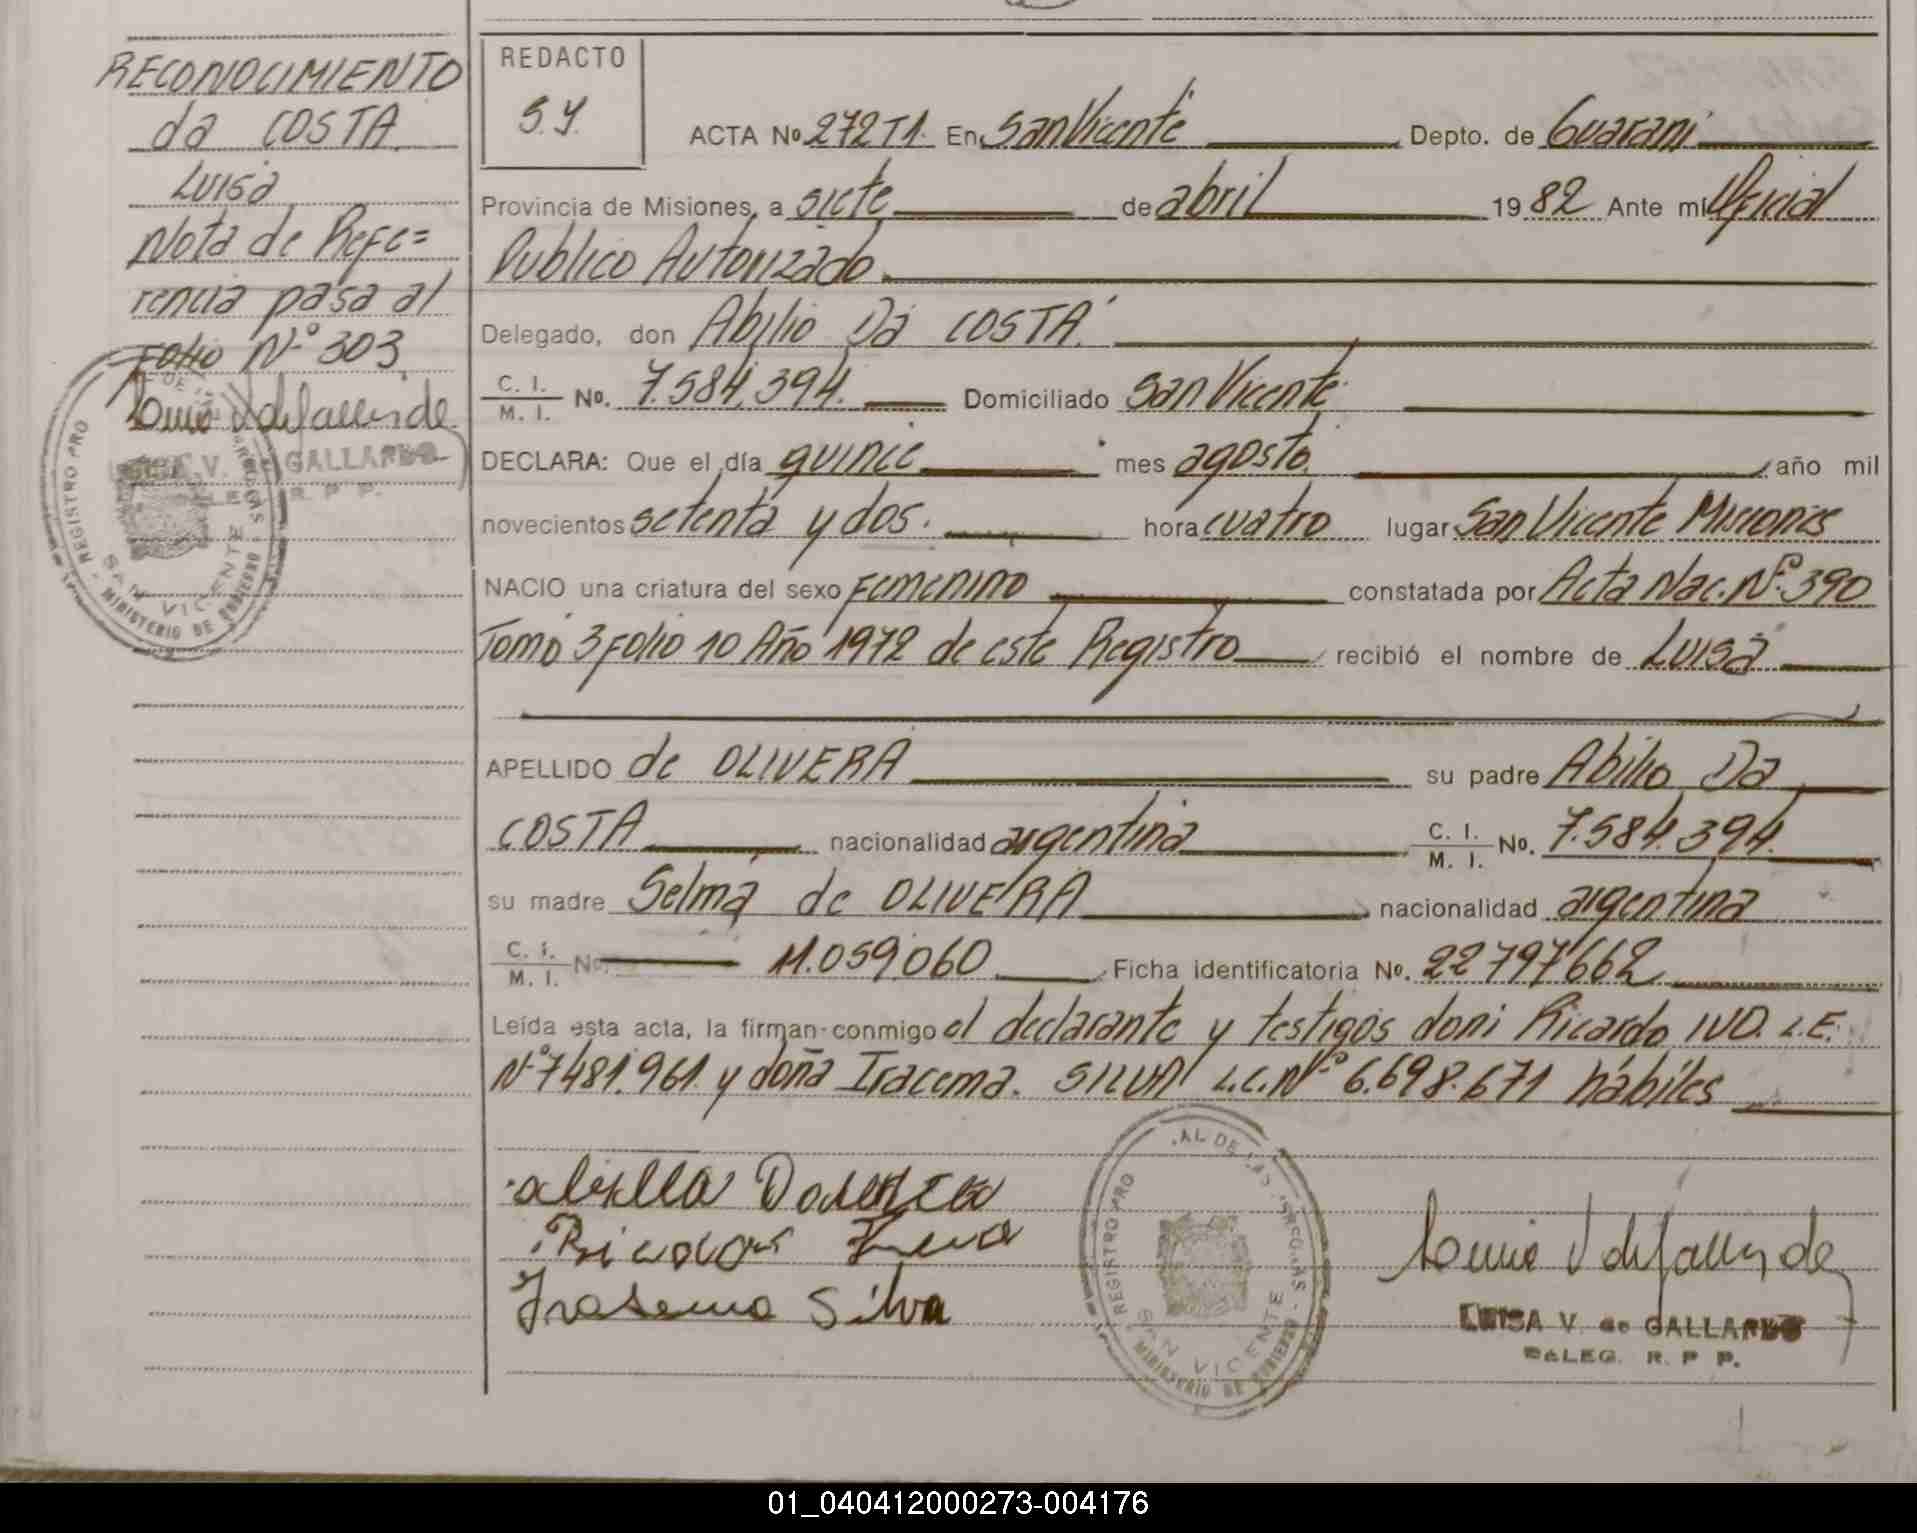 RECONOCIMIENTO
da COSTA
Luisa
Nota de Refe=
rencia pasa al
Folio Nº 303
LUISA V. de GALLARDO
R. P. P.
REGISTRO PRO
SAN VICENTE
MINISTERIO DE GOBIERNO
REDACTO
S.Y.
ACTA Nº 272 T1. En San Vicente Depto. de Guarani
Provincia de Misiones, a siete de abril 1982 Ante mí Oficial
Publico Autorizado
Delegado, don Abilio Da COSTA.
C. I. / M. I. No. 7.584.394. Domiciliado San Vicente
DECLARA: Que el día quince mes agosto año mil
novecientos setenta y dos. hora cuatro lugar San Vicente Misiones
NACIO una criatura del sexo Femenino constatada por Acta Nac. Nº 390
Tomo 3 Folio 10 Año 1972 de este Registro recibió el nombre de Luisa
APELLIDO de OLIVERA su padre Abilio Da
COSTA nacionalidad argentina C. I. / M. I. No. 7.584.394.
su madre Selma de OLIVERA nacionalidad argentina
C. I. / M. I. No. 11.059.060 Ficha identificatoria No. 22797662
Leída esta acta, la firman conmigo el declarante y testigos don: Ricardo IVO. L.E.
Nº 7481.961. y doña Iracema. SILVA L.C. Nº 6.698.671 hábiles
Silva
REGISTRO PRO
SAN VICENTE
MINISTERIO DE GOBIERNO
LUISA V. de GALLARDO
DELEG. R. P. P.
01_040412000273-004176